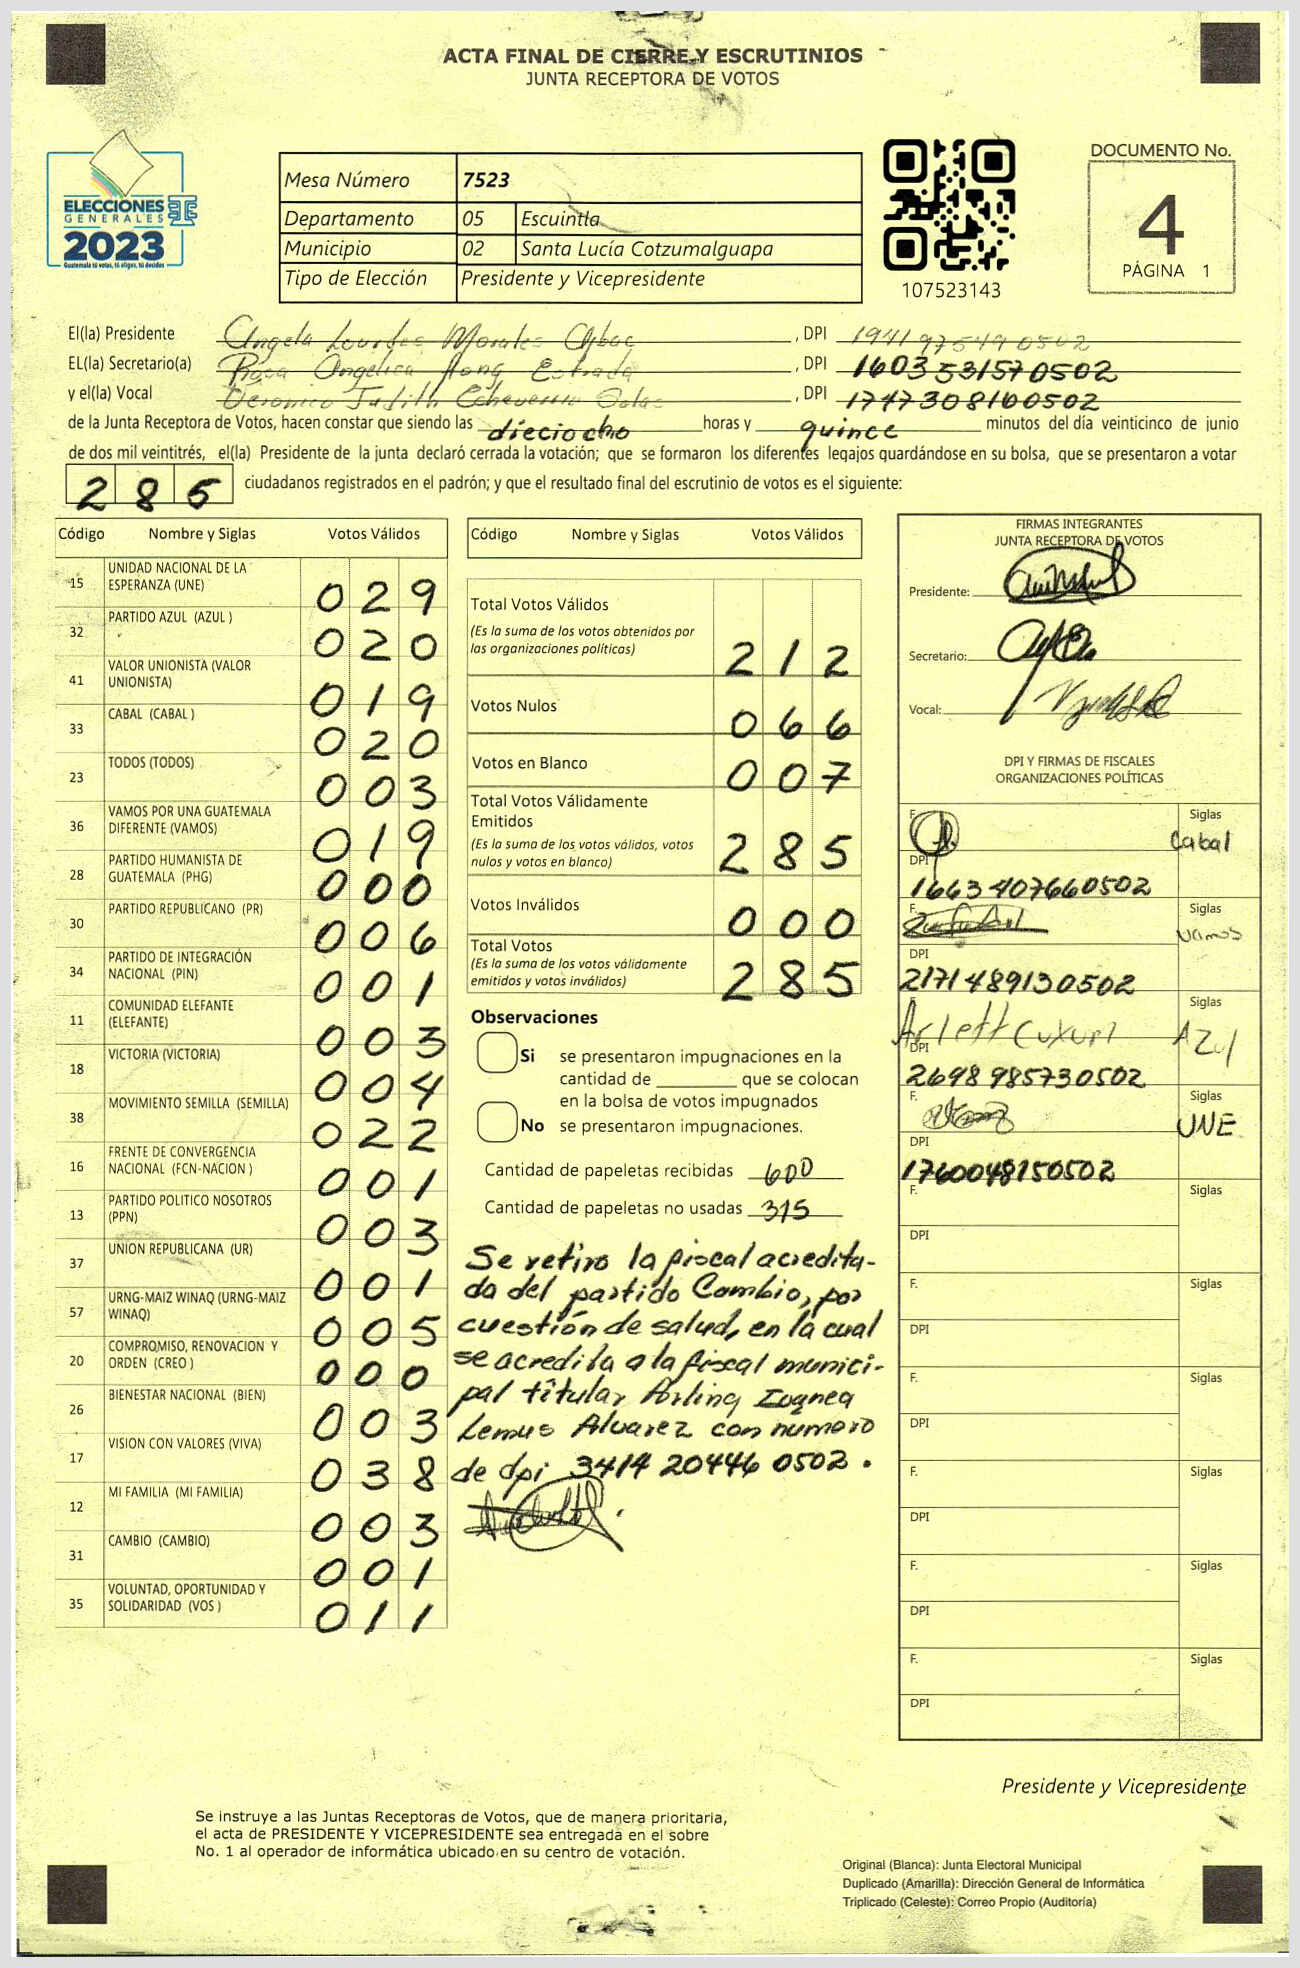 ACTA FINAL DE CIERRE Y ESCRUTINIOS
JUNTA RECEPTORA DE VOTOS
ELECCIONES
GENERALES
2023
Guatemala tú votas, tú eliges, tú decides
Mesa Número 7523
Departamento 05 Escuintla
Municipio 02 Santa Lucía Cotzumalguapa
Tipo de Elección Presidente y Vicepresidente
107523143
DOCUMENTO No.
4
PÁGINA 1
El(la) Presidente Angela Lourdes Morales , DPI 1941975490502
EL(la) Secretario(a) Rosa Angelica Estrada , DPI 1603531570502
y el(la) Vocal Veronica Judith Echeverria , DPI 1747308160502
de la Junta Receptora de Votos, hacen constar que siendo las dieciocho horas y quince minutos del día veinticinco de junio
de dos mil veintitrés, el(la) Presidente de la junta declaró cerrada la votación; que se formaron los diferentes legajos guardándose en su bolsa, que se presentaron a votar
285 ciudadanos registrados en el padrón; y que el resultado final del escrutinio de votos es el siguiente:
Código Nombre y Siglas Votos Válidos
15 UNIDAD NACIONAL DE LA ESPERANZA (UNE) 029
32 PARTIDO AZUL (AZUL ) 020
41 VALOR UNIONISTA (VALOR UNIONISTA) 019
33 CABAL (CABAL ) 020
23 TODOS (TODOS) 003
36 VAMOS POR UNA GUATEMALA DIFERENTE (VAMOS) 019
28 PARTIDO HUMANISTA DE GUATEMALA (PHG) 000
30 PARTIDO REPUBLICANO (PR) 006
34 PARTIDO DE INTEGRACIÓN NACIONAL (PIN) 001
11 COMUNIDAD ELEFANTE (ELEFANTE) 003
18 VICTORIA (VICTORIA) 004
38 MOVIMIENTO SEMILLA (SEMILLA) 022
16 FRENTE DE CONVERGENCIA NACIONAL (FCN-NACION ) 001
13 PARTIDO POLITICO NOSOTROS (PPN) 003
37 UNION REPUBLICANA (UR) 001
57 URNG-MAIZ WINAQ (URNG-MAIZ WINAQ) 005
20 COMPROMISO, RENOVACION Y ORDEN (CREO ) 000
26 BIENESTAR NACIONAL (BIEN) 003
17 VISION CON VALORES (VIVA) 038
12 MI FAMILIA (MI FAMILIA) 003
31 CAMBIO (CAMBIO) 001
35 VOLUNTAD, OPORTUNIDAD Y SOLIDARIDAD (VOS ) 011
Código Nombre y Siglas Votos Válidos
Total Votos Válidos 212
(Es la suma de los votos obtenidos por
las organizaciones políticas)
Votos Nulos 066
Votos en Blanco 007
Total Votos Válidamente
Emitidos 285
(Es la suma de los votos válidos, votos
nulos y votos en blanco)
Votos Inválidos 000
Total Votos 285
(Es la suma de los votos válidamente
emitidos y votos inválidos)
Observaciones
Si se presentaron impugnaciones en la
cantidad de ________ que se colocan
en la bolsa de votos impugnados
No se presentaron impugnaciones.
Cantidad de papeletas recibidas 600
Cantidad de papeletas no usadas 315
Se retiro la fiscal acredita-
da del partido Cambio, por
cuestión de salud, en la cual
se acredita a la fiscal munici-
pal titular
Lemus Alvarez con numero
de dpi 3414 20446 0502.
FIRMAS INTEGRANTES
JUNTA RECEPTORA DE VOTOS
Presidente:
Secretario:
Vocal:
DPI Y FIRMAS DE FISCALES
ORGANIZACIONES POLÍTICAS
F. Siglas
Cabal
DPI
1663407660502
F. Siglas
Vamos
DPI
2171489130502
Siglas
Arlett Cuxum Azul
DPI
2698985730502
F.
UNE
DPI
1760048150502
F. Siglas
DPI
F. Siglas
DPI
F. Siglas
DPI
F. Siglas
DPI
F. Siglas
DPI
F. Siglas
DPI
Presidente y Vicepresidente
Se instruye a las Juntas Receptoras de Votos, que de manera prioritaria,
el acta de PRESIDENTE Y VICEPRESIDENTE sea entregada en el sobre
No. 1 al operador de informática ubicado en su centro de votación.
Original (Blanca): Junta Electoral Municipal
Duplicado (Amarilla): Dirección General de Informática
Triplicado (Celeste): Correo Propio (Auditoría)